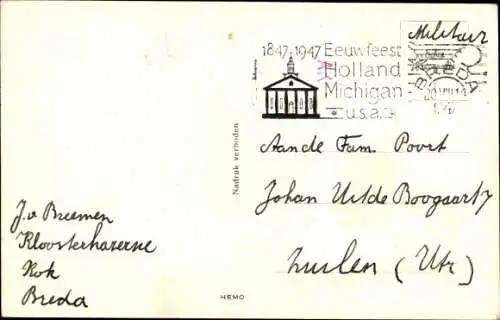 Militair
1847-1947 Eeuwfeest
Holland
Michigan
u.s.a.
BREDA
Nadruk verboden
Aan de Fam. Poort
Johan Uit de Boogaart 7
Zuilen (Utr)
J. v Breemen
Kloosterkazerne
Kok
Breda
HEMO